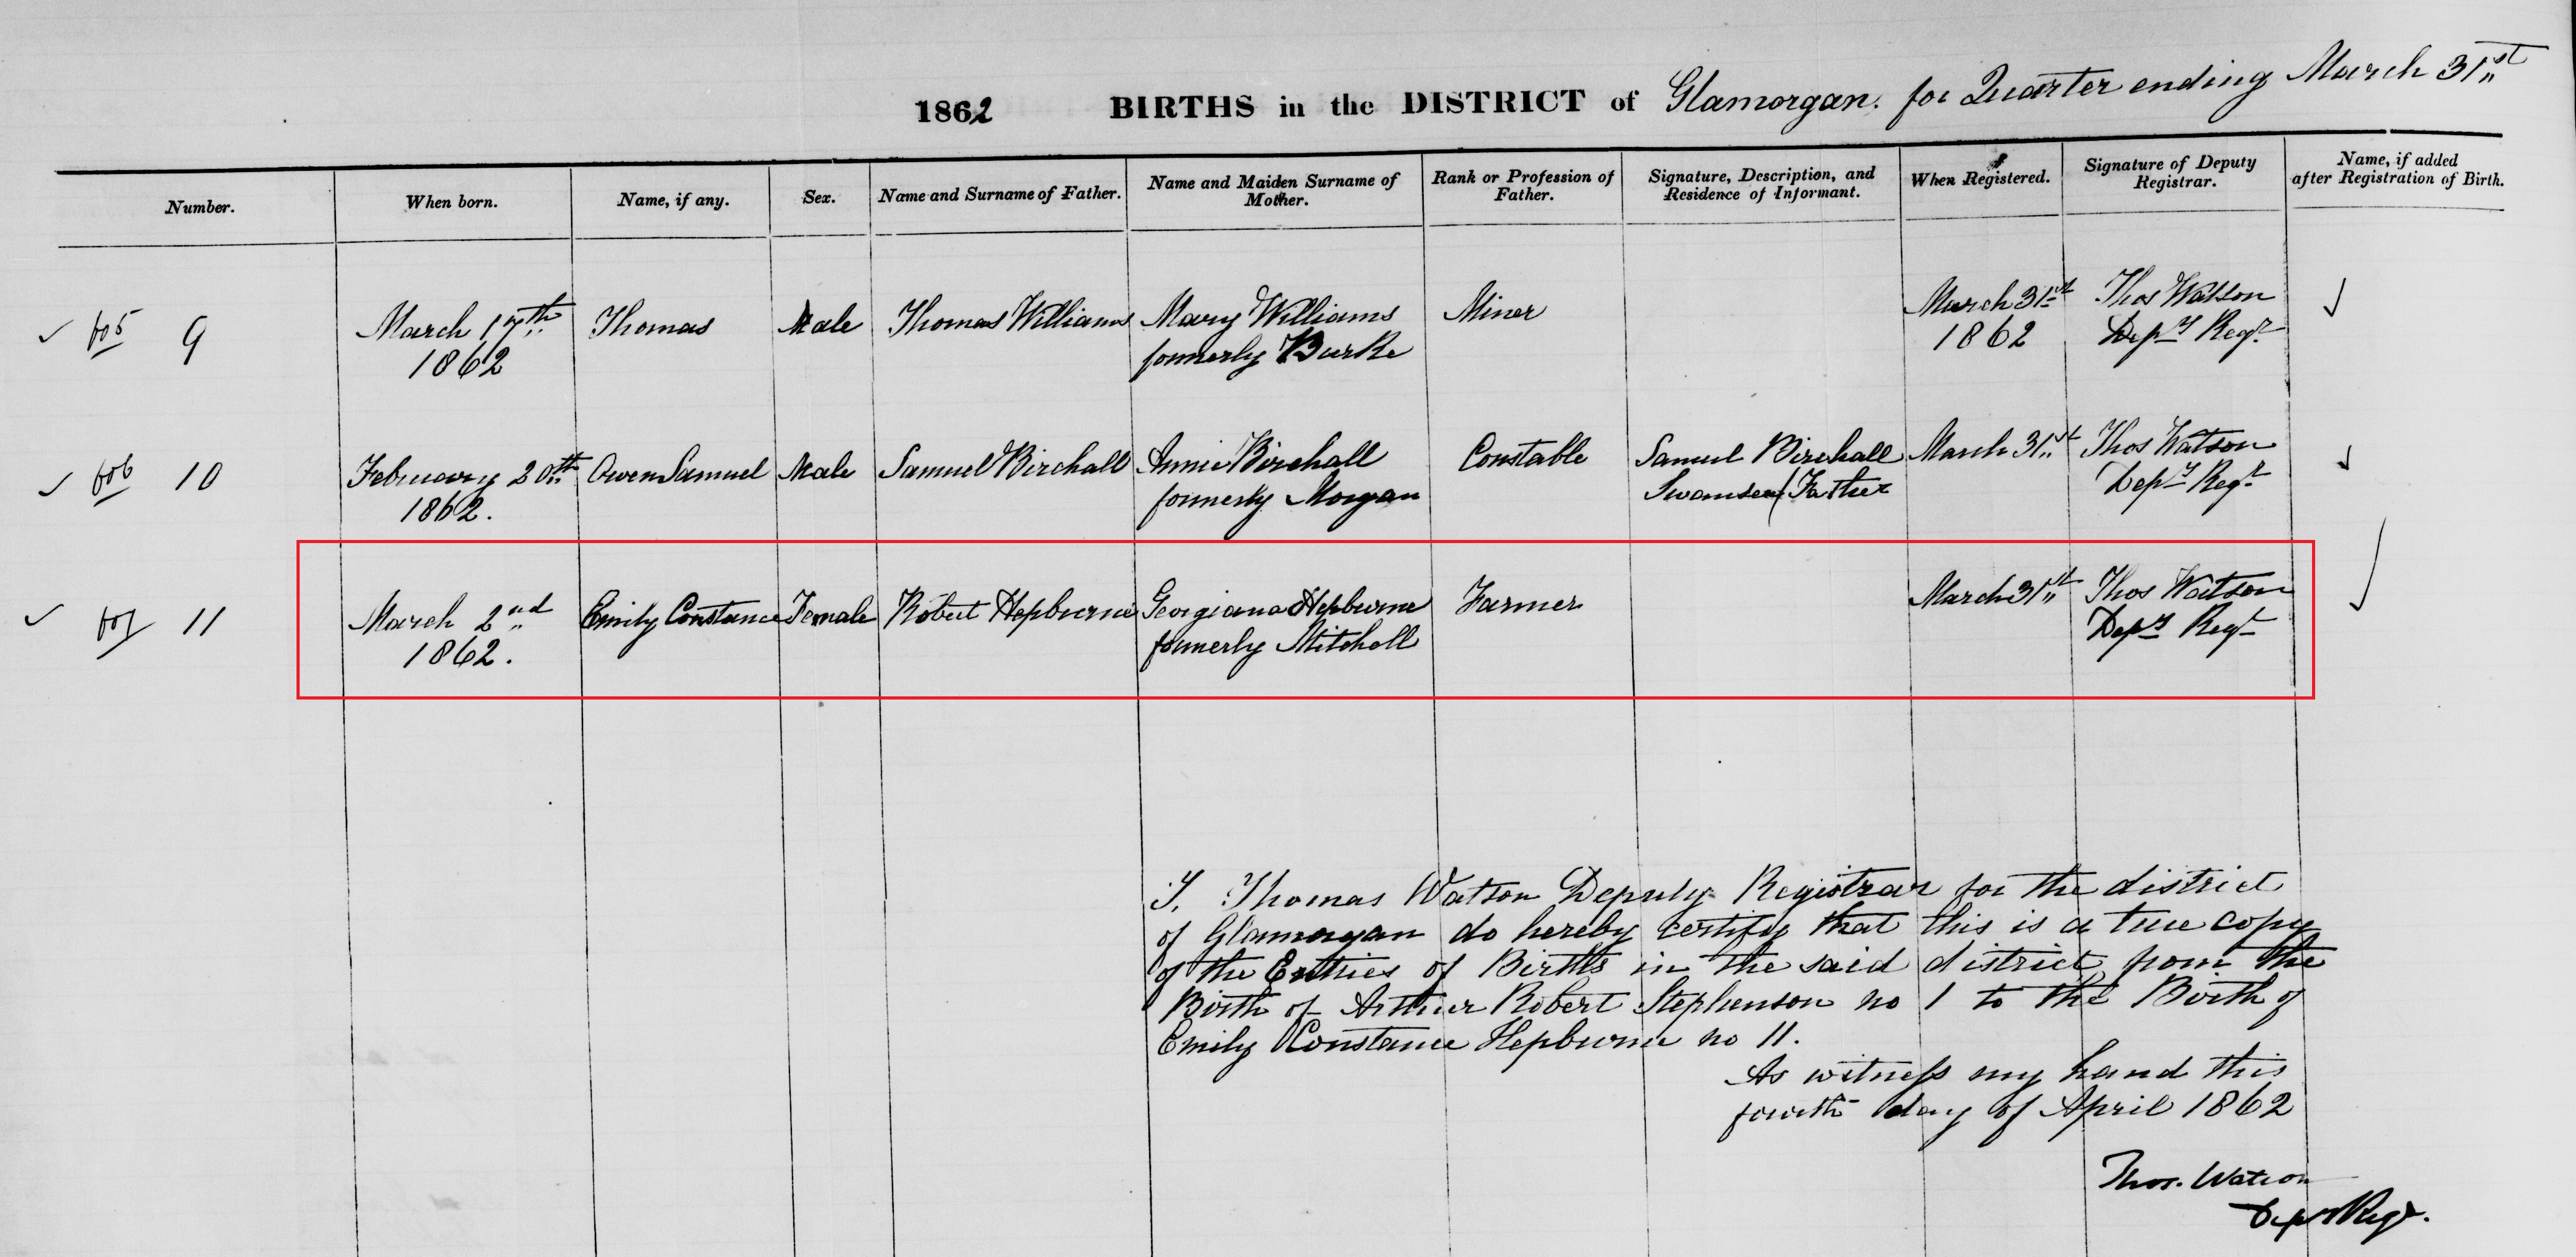 1862 BIRTHS in the DISTRICT of Glamorgan. for Quarter ending March 31st
Number. When born. Name, if any. Sex. Name and Surname of Father. Name and Maiden Surname of Mother. Rank or Profession of Father. Signature, Description, and Residence of Informant. When Registered. Signature of Deputy Registrar. Name, if added after Registration of Birth.
605 9 March 17th 1862 Thomas Male Thomas Williams Mary Williams formerly Burke Miner March 31st 1862 Thos Watson Depy Regr
606 10 February 20th 1862. Owen Samuel Male Samuel Birchall Annie Birchall formerly Morgan Constable Samuel Birchall Swansea Father March 31st Thos Watson Depy Regr
607 11 March 2nd 1862. Emily Constance Female Robert Hepburne Georgiana Hepburne formerly Mitchell Farmer March 31st Thos Watson Depy Regr
I, Thomas Watson Deputy Registrar for the district
of Glamorgan do hereby certify that this is a true copy
of the Entries of Births in the said district from the
Birth of Arthur Robert Stephenson no 1 to the Birth of
Emily Constance Hepburne no 11.
As witness my hand this
fourth day of April 1862
Thos. Watson
Depy Regr.